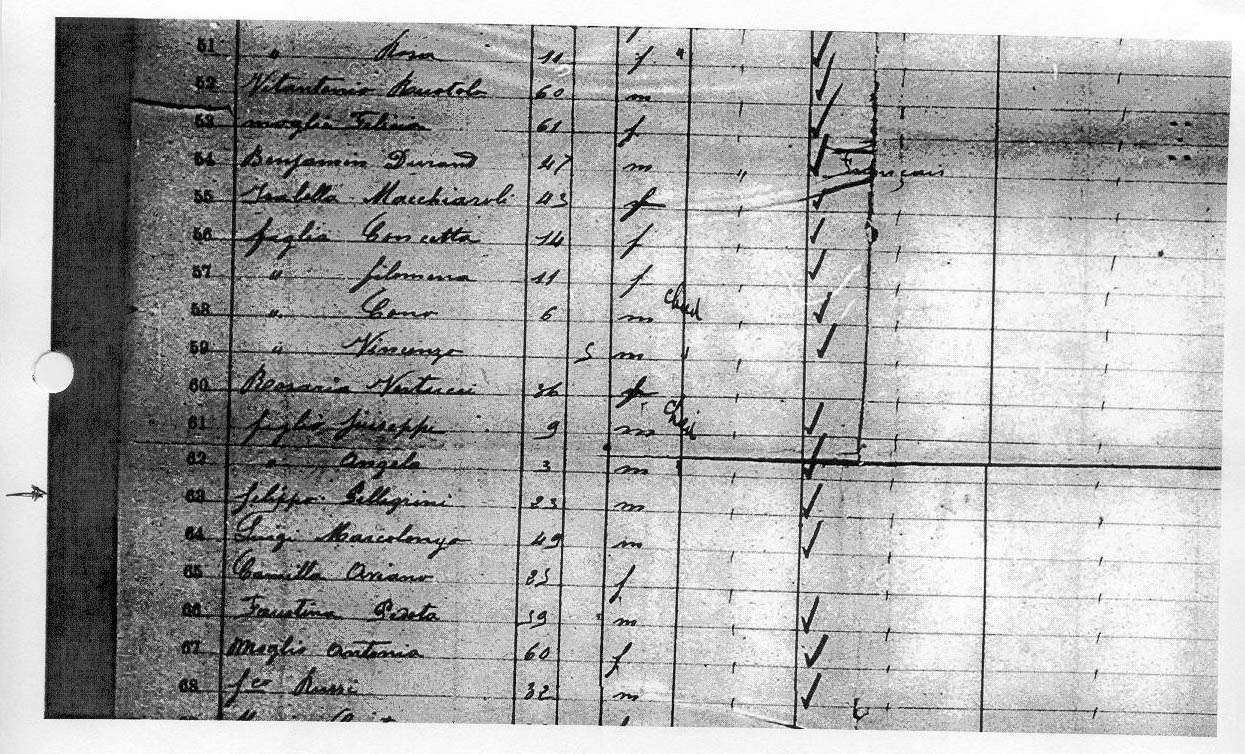 51 " Rosa 11 f "
52 Vitantonio Ruotolo 60 m
53 moglie Felicia 61 f
54 Benjamin Durand 47 m " Français
55 Isabella Macchiaroli 43 f
56 figlia Concetta 14 f
57 " filomena 11 f
58 " Cono 6 m child
59 " Vincenzo 5 m "
60 Rosaria Vertucci 36 f
61 figlio Giuseppe 9 m child
62 " Angelo 3 m "
63 filippo Pellegrini 23 m
64 Luigi Marcolongo 49 m
65 Camilla Ariano f
66 Faustina 39 m
67 Moglie Antonia 60 f
68 fco Russi 32 m